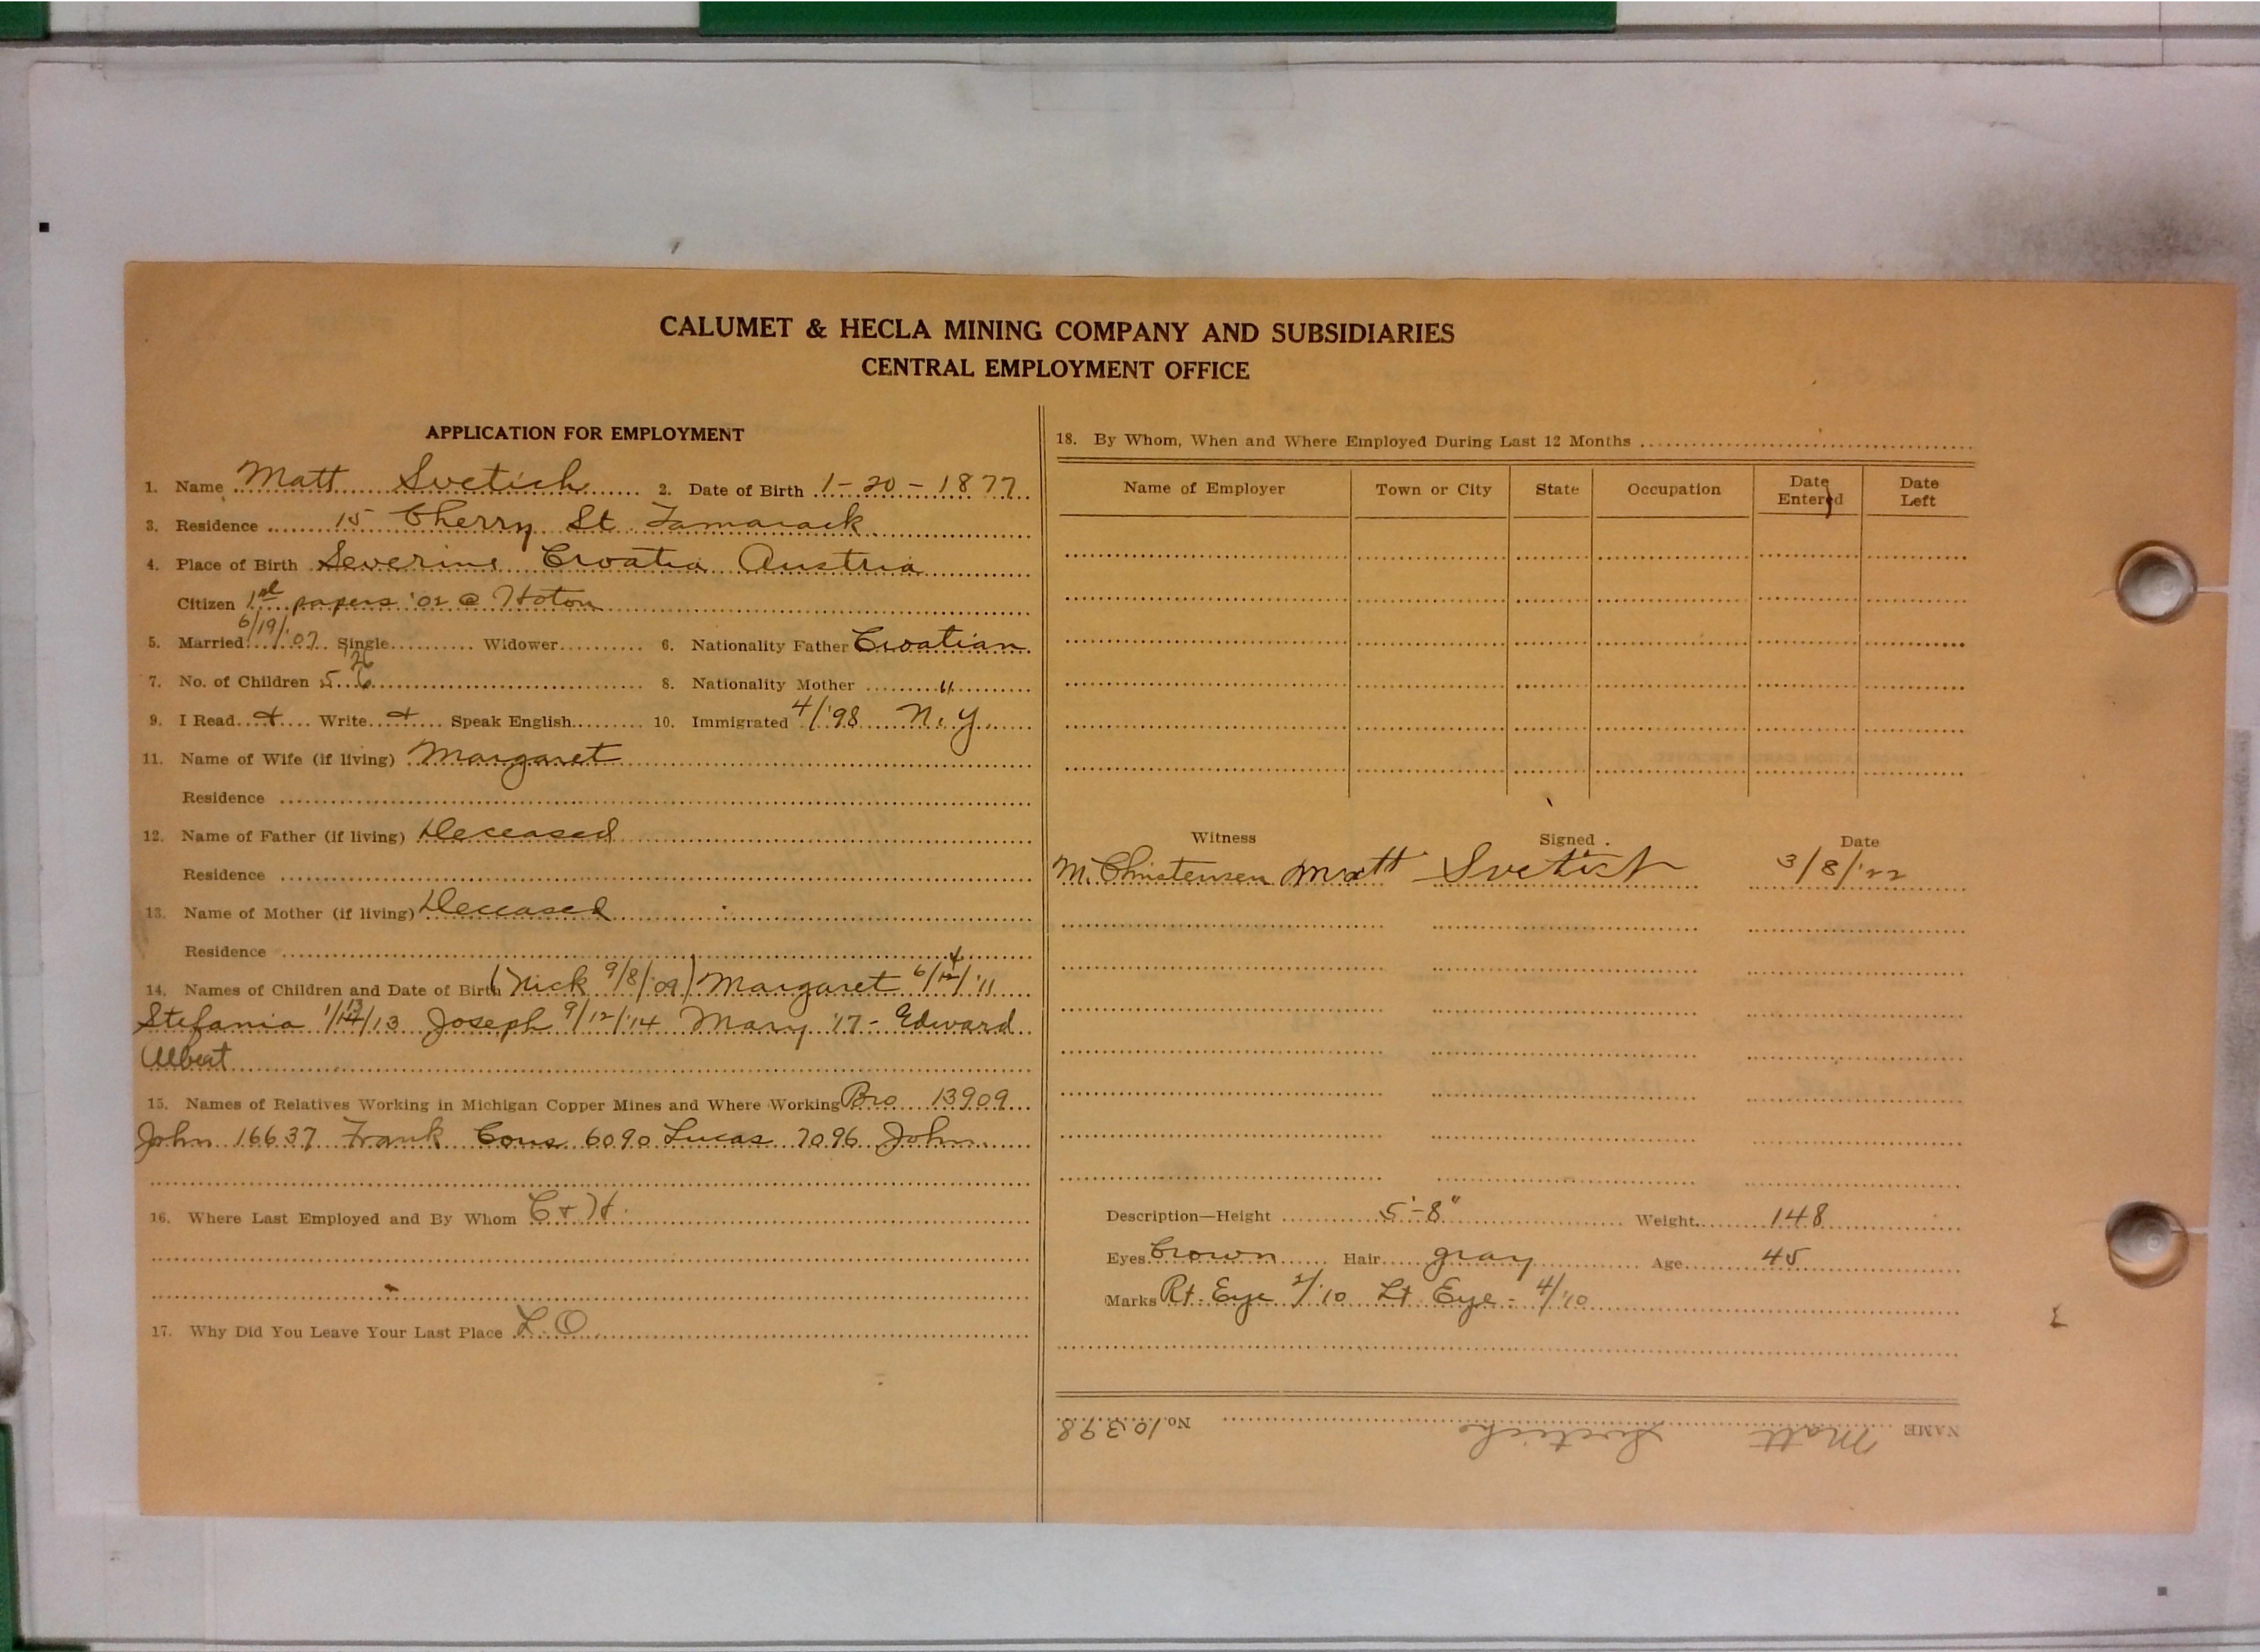 CALUMET & HECLA MINING COMPANY AND SUBSIDIARIES
CENTRAL EMPLOYMENT OFFICE
APPLICATION FOR EMPLOYMENT
1. Name Matt Svetich 2. Date of Birth 1-20-1877
3. Residence 15 Cherry St Tamarack
4. Place of Birth Severine Croatia Austria
Citizen 1st papers '02 @ Hoton
5. Married 6/19/'07 Single Widower 6. Nationality Father Croatian
7. No. of Children 5 6 26 8. Nationality Mother "
9. I Read + Write + Speak English 10. Immigrated 4/'98 N.Y.
11. Name of Wife (if living) Margaret
Residence
12. Name of Father (if living) Deceased
Residence
13. Name of Mother (if living) Deceased
Residence
14. Names of Children and Date of Birth (Nick 9/8/'09) Margaret 6/ /'11
Stefania 1/ /13 Joseph 9/12/'14 Mary '17 - Edward
Albert
15. Names of Relatives Working in Michigan Copper Mines and Where Working Bro 13909
John 16637 Frank Cous 6090 Lucas 7096 John
16. Where Last Employed and By Whom C & H
17. Why Did You Leave Your Last Place L.O
18. By Whom, When and Where Employed During Last 12 Months
Name of Employer Town or City State Occupation Date Entered Date Left
Witness Signed Date
M. Christensen Matt Svetich 3/8/'22
Description—Height 5'-8" Weight 148
Eyes Brown Hair gray Age 45
Marks Rt. Eye 2/10 Lt Eye - 4/10
NAME Matt Svetich No. 10398